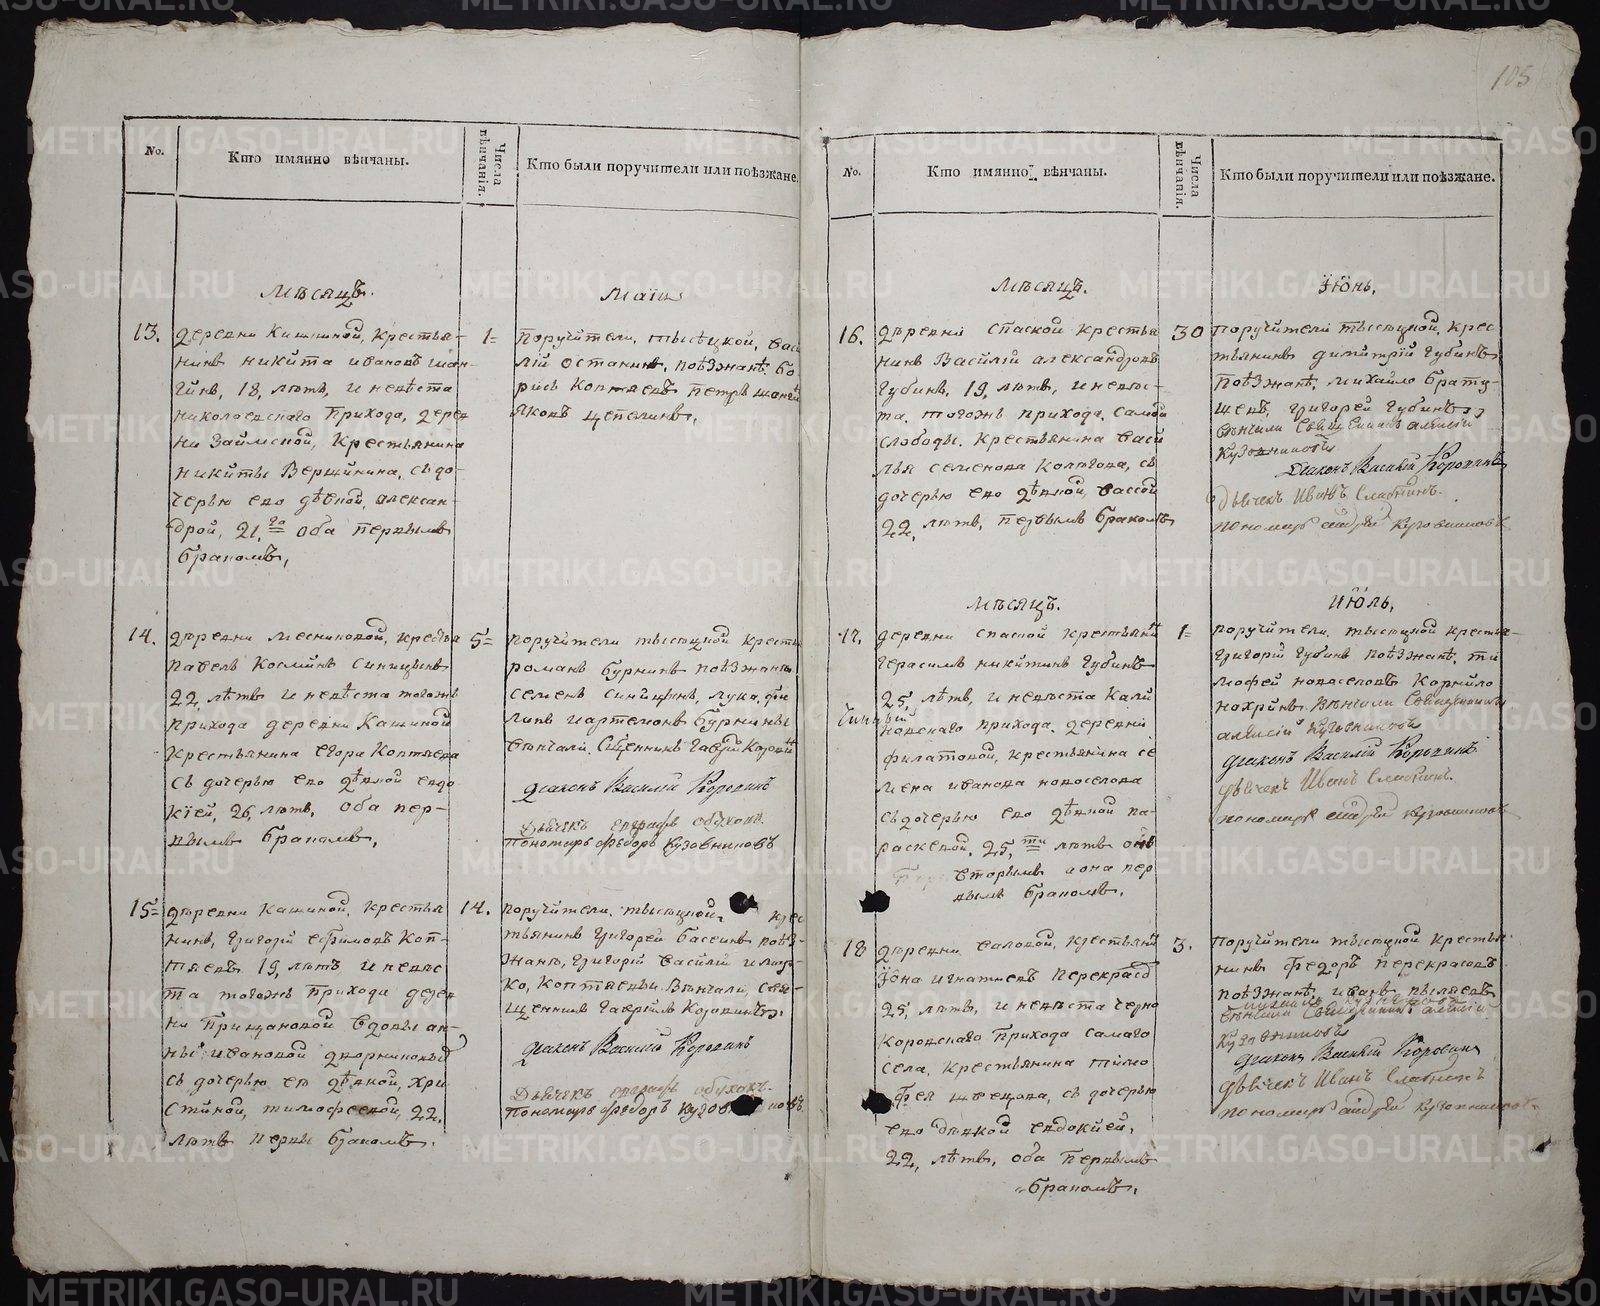 105
No.
Кто имянно вѣнчаны.
Числа вѣнчанія.
Кто были поручители или поѣзжане.
Мѣсяцъ.
Маіи
13.
деревни Кашиной, крестья-
нинъ никита ивановъ шан-
гинъ, 18, лѣтъ, и невѣста
николаевскаго прихода, дерев
ни Займской, Крестьянина
никиты Вершинина, съ до-
черью ево дѣвкой, алексан-
дрой, 21,го оба первымъ
бракомъ,
1=
поручители, тысяцкой, васи
лій останинъ, поѣзжанѣ, бо-
рисъ Коптяевъ петръ шанги
яковъ щепелинъ,
14.
деревни месниковой, крестья
павелъ Космнинъ синицынъ
22, лѣтъ и невѣста тогожъ
прихода деревни Кашиной
крестьянина егора Коптяева
съ дочерью ево дѣвкой евдо
кіей, 26, лѣтъ, оба пер-
вымъ бракомъ,
5=
поручители тысяцкой кресть
романъ бурнинъ поѣзжаны
семенъ синицынъ, лука, фи
липъ иартемонъ бурнины
вѣнчали, Сщенникъ гаврiи Корови
діаконъ Василій Коровинъ
Дьячекъ евграфъ обухов.
Пономарь Федоръ Кузовниковъ
15=
деревни Кашиной, крестья
нинъ, григорій ефимовъ Коп-
тяевъ 19, лѣтъ, и невѣс
та тогожъ прихода дерев
ни Прищановой вдовы ан-
ны ивановой дворниковы
съ дочерью ея дѣвкой, хри
стиной, тимофеевой, 22,
лѣтъ первы бракомъ,
14.
поручители, тысяцкой, крес
тьянинъ григорей басеинъ поѣз-
жанѣ, григорій василій и мар-
ко, Коптяевы. Вѣнчали, свя-
щенникъ гаврiилъ Коровинъ,
діаконъ Василій Коровинъ
Дьячекъ евграфъ обухов.
Пономарь Федоръ Кузов никовъ
No.
Кто имянно вѣнчаны.
Числа вѣнчанія.
Кто были поручители или поѣзжане.
Мѣсяцъ.
Іюнь,
16.
деревни спаской крестья
нинъ Василій александровъ
губинъ, 19, лѣтъ, и невѣс-
та, тогожъ прихода, самой
слободы, крестьянина васи
лья семенова Колмогова, съ
дочерью ево дѣвкой, вассой
22, лѣтъ, первымъ бракомъ
30
поручители тысяцкой, крес
тьянинъ димитрій губинъ
поѣзжанѣ, михайло брату-
шевъ, григорей губинъ,
вѣнчали Священникъ алексій
Кузовниковъ
діаконъ Василій Коровинъ
дьячекъ Иванъ Слабнинъ.
пономарь андрей кузовниковъ
Мѣсяцъ.
Июль,
17.
деревни спаской крестьянин
герасимъ никитинъ губинъ
25, лѣтъ, и невѣста Кали
новскаго прихода, деревни
филатовой, крестьянина се
мена иванова новоселова
съ дочерью ево дѣвкой па-
раскевой, 25,ти лѣтъ онъ
вторымъ аона пер
вымъ бракомъ,
1=
поручители, тысяцкой кресть-
григорій губинъ поѣзжанѣ, ти
мофей новоселовъ Корнило
нохринъ. Вѣнчали Священникъ
алексій Кузовниковъ
діаконъ Василій Коровинъ
дьячекъ Иванъ Слабнинъ.
пономарь андрей кузовниковъ
18
деревни валовой, крестьянин
іона игнатьевъ перекрасов
25, лѣтъ, и невѣста черно
коровскаго прихода самаго
села, крестьянина тимо
фея швецова, съ дочерью
ево дѣвкой евдокіей,
22, лѣтъ, оба первымъ
бракомъ,
3.
поручители тысяцкой крестья-
нинъ федоръ перекрасовъ
поѣзжанѣ, иванъ пыляевъ
вѣнчали Священникъ алексій
Кузовниковъ
діаконъ Василій Коровинъ
дьячекъ Иванъ Слабнинъ
пономарь андрей кузовниковъ
METRIKI.GASO-URAL.RU